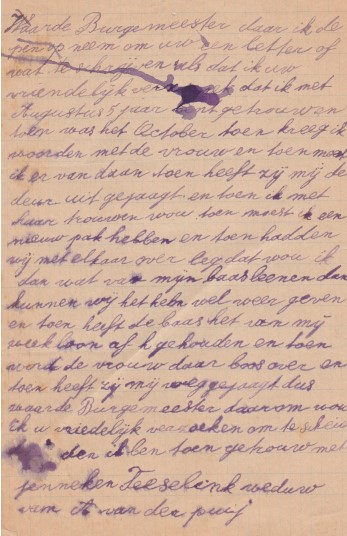 Waarde Burgemeester daar ik de
pen op neem om uw een letter of
wat te schrijven als dat ik uw
vriendelijk dat ik met
Augustus 5 jaar getrouwen
toen was het October toen kreeg ik
woorden met de vrouw en toen moest
ik er van daan toen heeft zij mij de
deur uit gejaagt en toen ik met
haar trouwen wou toen moest ik een
nieuw pak hebben en toen hadden
wij met elkaar over leg dat wou ik
dan wat van mijn baas leenen dan
kunnen wy het hem wel weer geven
en toen heeft de baas het van mij
week loon af gehouden en toen
word de vrouw daar boos over en
toen heeft zij mij weggejaagt dus
waarde Burgemeester daarom wou
ik u vriedelijk verzoeken om te scheiden
den ik ben toen getrouw met
jenneken Teeselink weduw
van A van der pwij